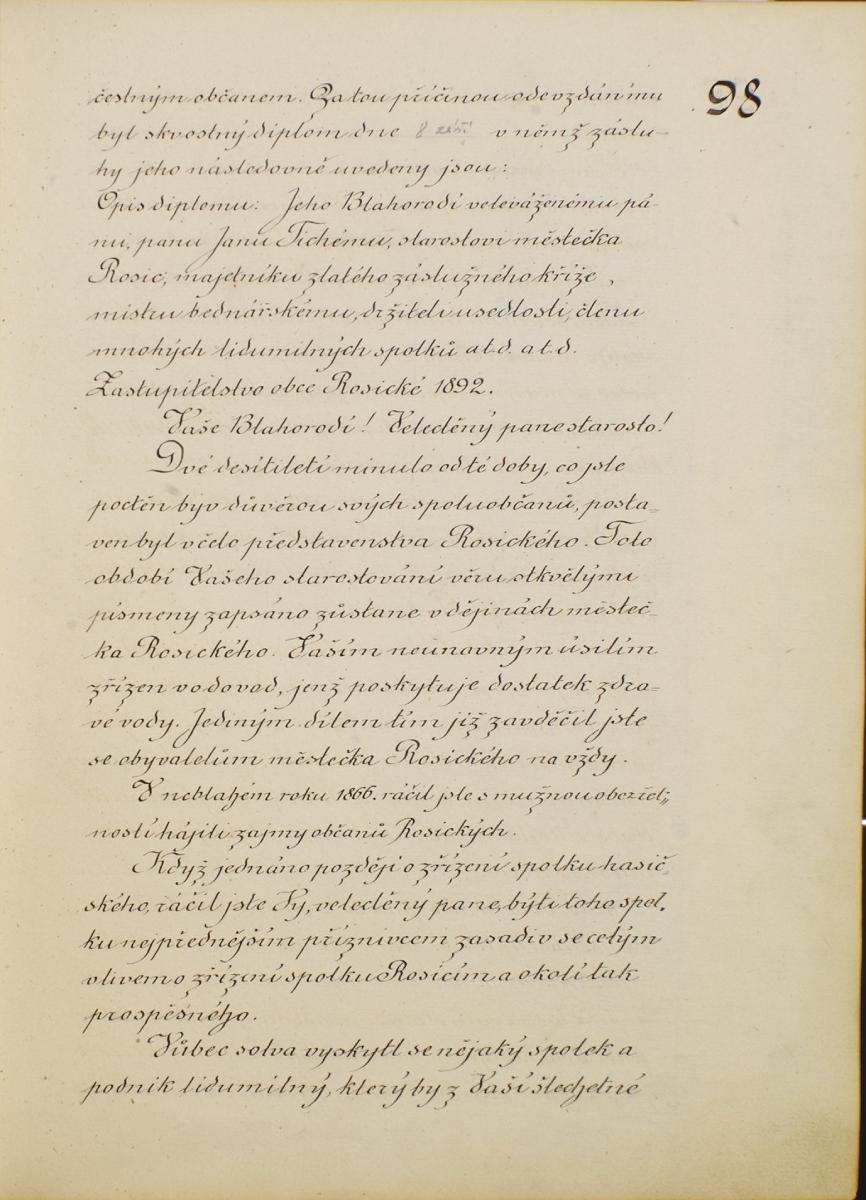 98
čestným občanem. Za tou příčinou odevzdán mu
byl skvostný diplom dne 8 září v němž záslu-
hy jeho následovně uvedeny jsou:
Opis diplomu: Jeho Blahorodí veleváženému pá-
nu, panu Janu Tichému, starostovi městečka
Rosic, majetníku zlatého záslužného kříže,
mistru bednářskému, držiteli usedlosti, členu
mnohých lidumilných spolků a t. d. a t. d.
Zastupitelstvo obce Rosické 1892.
Vaše Blahorodí! Velectěný pane starosto!
Dvě desítiletí minulo od té doby, co jste
poctěn byv důvěrou svých spoluobčanů, posta-
ven byl v čelo představenstva Rosického. Toto
období Vašeho starostování věru stkvělými
písmeny zapsáno zůstane v dějinách městeč-
ka Rosického. Vaším neúnavným úsilím
zřízen vodovod, jenž poskytuje dostatek zdra-
vé vody. Jediným dílem tím již zavděčil jste
se obyvatelům městečka Rosického na vždy.
V neblahém roku 1866. ráčil jste s mužnou obezřet-
ností hájiti zajmy občanů Rosických.
Když jednáno později o zřízení spolku hasič
ského, ráčil jste Vy, velectěný pane, býti toho spol-
ku nejpřednějším příznivcem zasadiv se celým
vlivem o zřízení spolku Rosicím a okolí tak
prospěšného.
Vůbec sotva vyskytl se nějaký spolek a
podnik lidumilný, který by z Vaší šlechetné